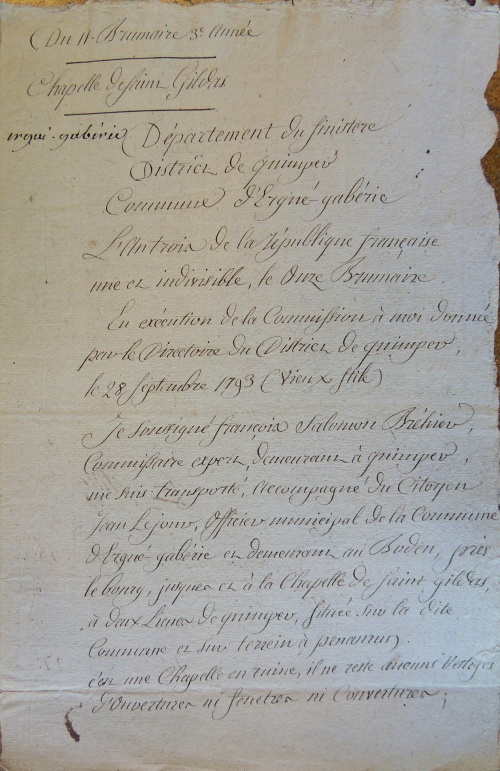 Du 11. Brumaire 3e Année
Chapelle de Saint Gildas
ergué-gabéric
Département du finistere
District de quimper
Commune d'Ergué-gabéric
L'An trois de la République française
une et indivisible, le Onze Brumaire.
En exécution de la Commission à moi donnée
par le Directoire du District de quimper,
le 28 septembre 1793 (Vieux stile)
Je soussigné françois Salomon Bréhier,
Commissaire expert, demeurant à quimper,
me suis transporté, accompagné du Citoyen
Jean Lejour, Officier municipal de la Commune
d'Ergué-gabérie et demeurant au Boden, près
le bourg, jusques et à la Chapelle de Saint gildas,
à deux Lieues de quimper, située sur la dite
Commune et sur terrein à penanrun.
c'est une Chapelle en ruine, il ne reste aucuns Vestiges
d'Ouvertures ni fenetres ni Couvertures;